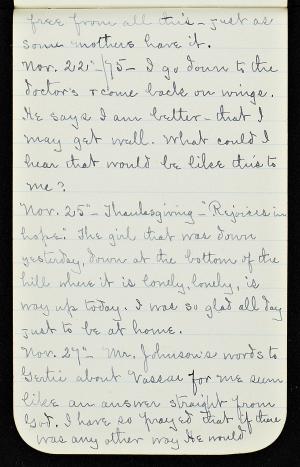 free from all this - just as
some mothers have it.
Nov. 22"-/75 - I go down to the
doctor's & come back on wings.
He says I am better - that I
may get well. What could I
hear that would be like this to
me?
Nov. 25" - Thanksgiving - "Rejoices in
hope." The girl that was down
yesterday, down at the bottom of the
hill where it is lonely, lonely, is
way up today. I was so glad all day
just to be at home.
Nov. 27" - Mr. Johnson's words to
Gertie about Vassar for me seem
like an answer straight from
God. I have so prayed that if there
was any other way He would